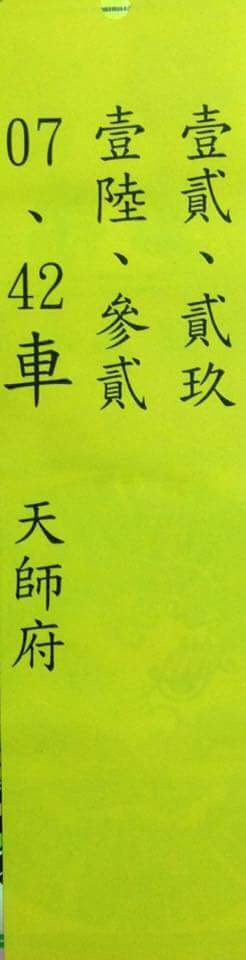 壹貳、貳玖
壹陸、參貳
07、42車 天師府